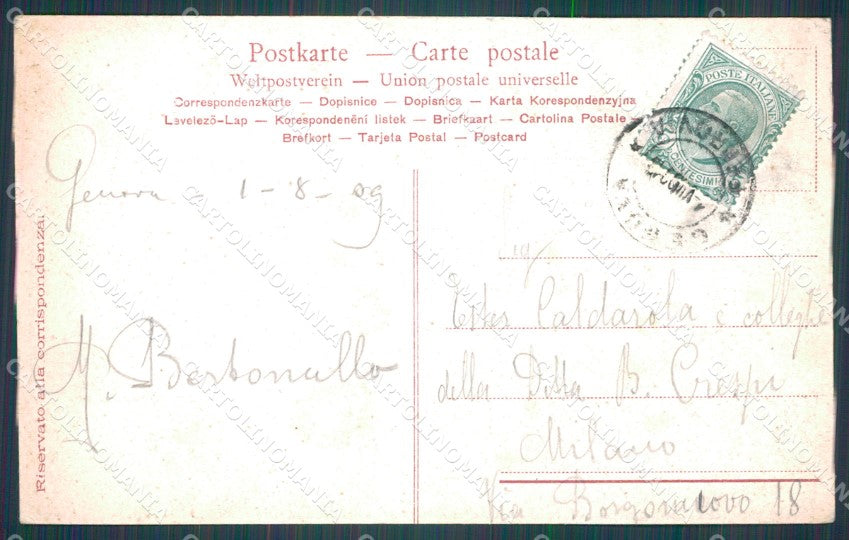 Postkarte — Carte postale
Weltpostverein — Union postale universelle
Correspondenzkarte — Dopisnice — Dopisnica — Karta Korespondenzyjna
Levelező-Lap — Korespondenční listek — Briefkaart — Cartolina Postale
Brefkort — Tarjeta Postal — Postcard
POSTE ITALIANE
CENTESIMI
Genova 1-8-09
Riservato alla corrispondenza.
Caldarola e colleghi
M. Bertonallo
della Ditta B. Crespi
Milano
Via Borgonuovo 18
CARTOLINOMANIA